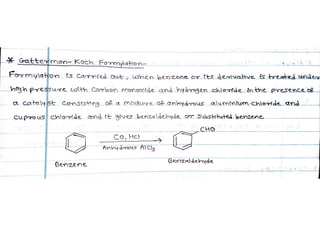 * Gatterman-Koch Formylation-
Formylation is carried out, when benzene or its derivative is treated under
high pressure with carbon monoxide and hydrogen chloride in the presence of
a catalyst consisting of a mixture of anhydrous aluminium chloride and
cuprous chloride and it gives benzaldehyde or substituted benzene
CHO
CO, HCl
Anhydrous AlCl3
Benzene
Benzaldehyde